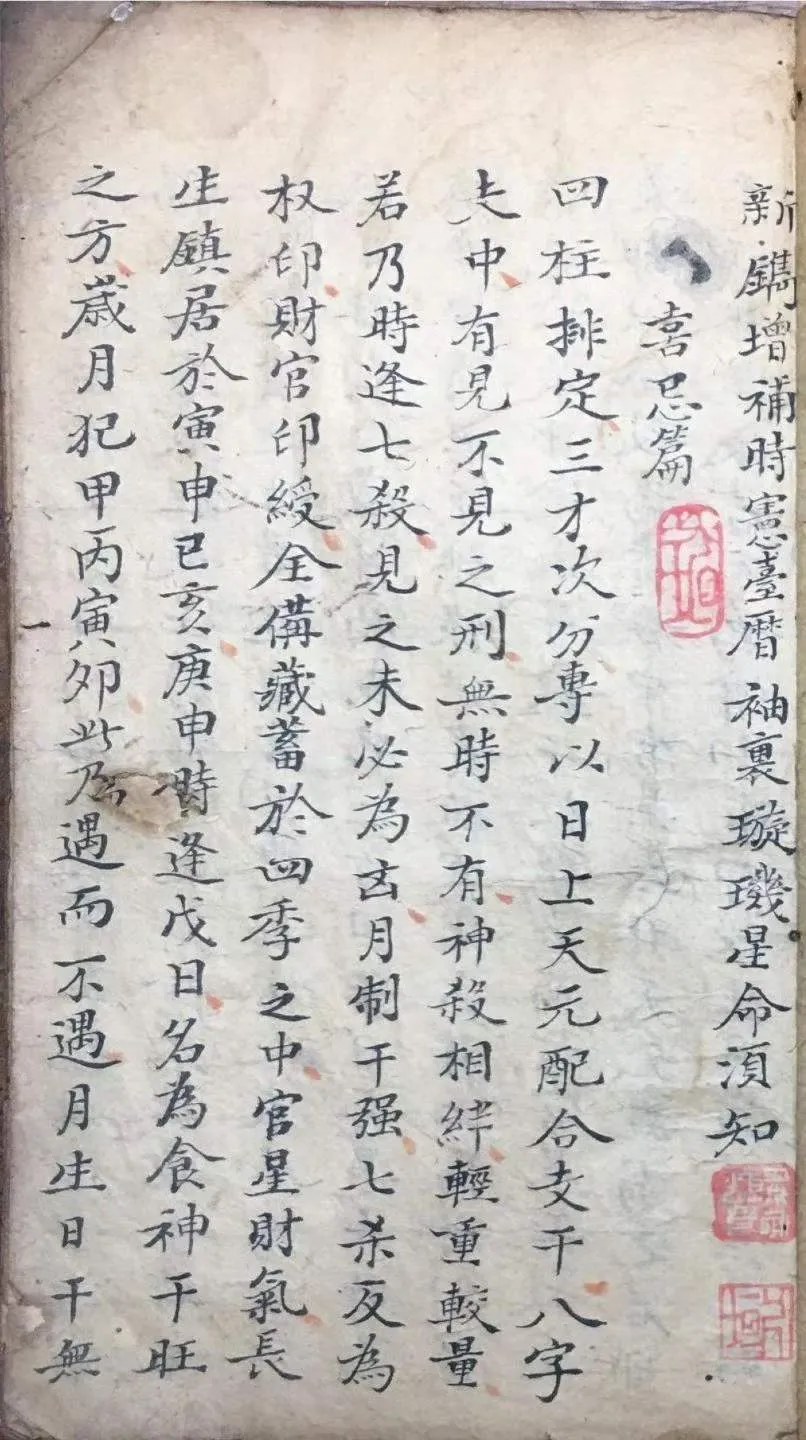 新鐫增補時憲臺曆袖裏璇璣星命須知
喜忌篇
四柱排定三才次分專以日上天元配合支干八字
夫中有見不見之刑無時不有神殺相絆輕重較量
若乃時逢七殺見之未必為凶月制干强七杀反為
权印財官印綬全備藏蓄於四季之中官星財氣長
生鎮居於寅申巳亥庚申時逢戊日名為食神干旺
之方歲月犯甲丙寅卯此乃遇而不遇月生日干無